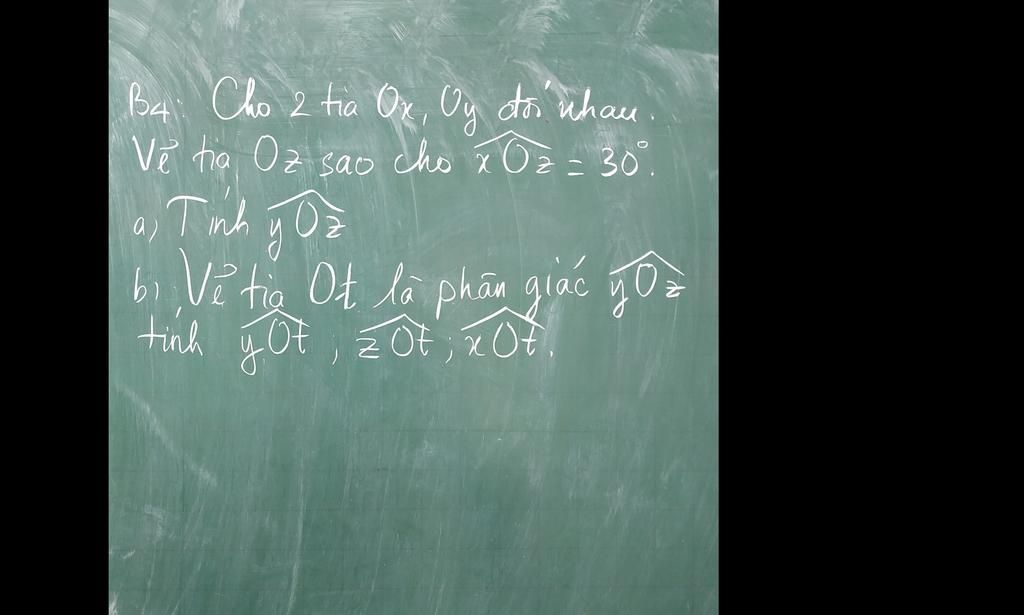 B4: Cho 2 tia Ox, Oy đối nhau.
Vẽ tia Oz sao cho xOz = 30°.
a) Tính yOz
b) Vẽ tia Ot là phân giác yOz
tính yOt ; zOt ; xOt.